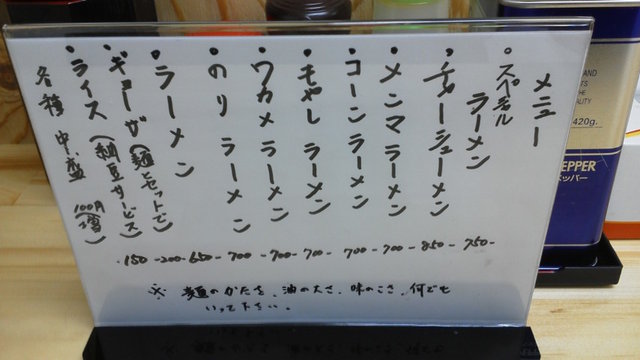 メニュー
・スペシャル
ラーメン 750-
・チャーシューメン 850-
・メンマラーメン 700-
・コーンラーメン 700-
・モヤシラーメン 700-
・ワカメラーメン 700-
・のりラーメン 700-
・ラーメン 650-
・ギョーザ(麺とセットで) 200-
・ライス(納豆サービス) 150
各種 中、盛 (100円増)
※ 麺のかたさ、油の大さ、味のこさ、何でも
いって下さい。
AND
QUALITY
420g.
PEPPER
ペッパー